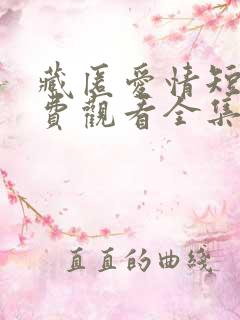 藏匿愛情短
費觀看全集
直直的曲綫